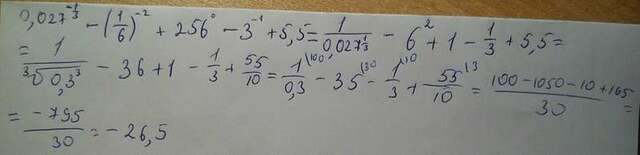 0,027^{-1/3} - (1/6)^{-2} + 256^0 - 3^{-1} + 5,5 = 1/0,027^{1/3} - 6^2 + 1 - 1/3 + 5,5 =
= 1/∛0,3^3 - 36 + 1 - 1/3 + 55/10 = 1/0,3 \100 - 35 \30 - 1/3 \10 + 55/10 \3 = (100 - 1050 - 10 + 165)/30 =
= -795/30 = -26,5